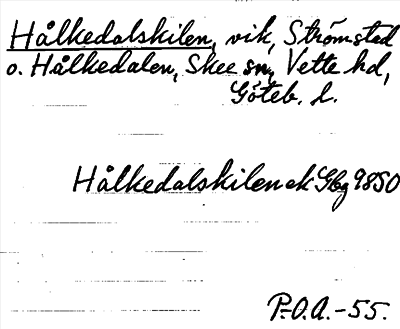 Hålkedalskilen, vik, Strömstad
o. Hålkedalen, Skee sn, Vette hd,
Göteb. l.
Hålkedalskilen ek Gbg 9850
P.-O.A. -55.